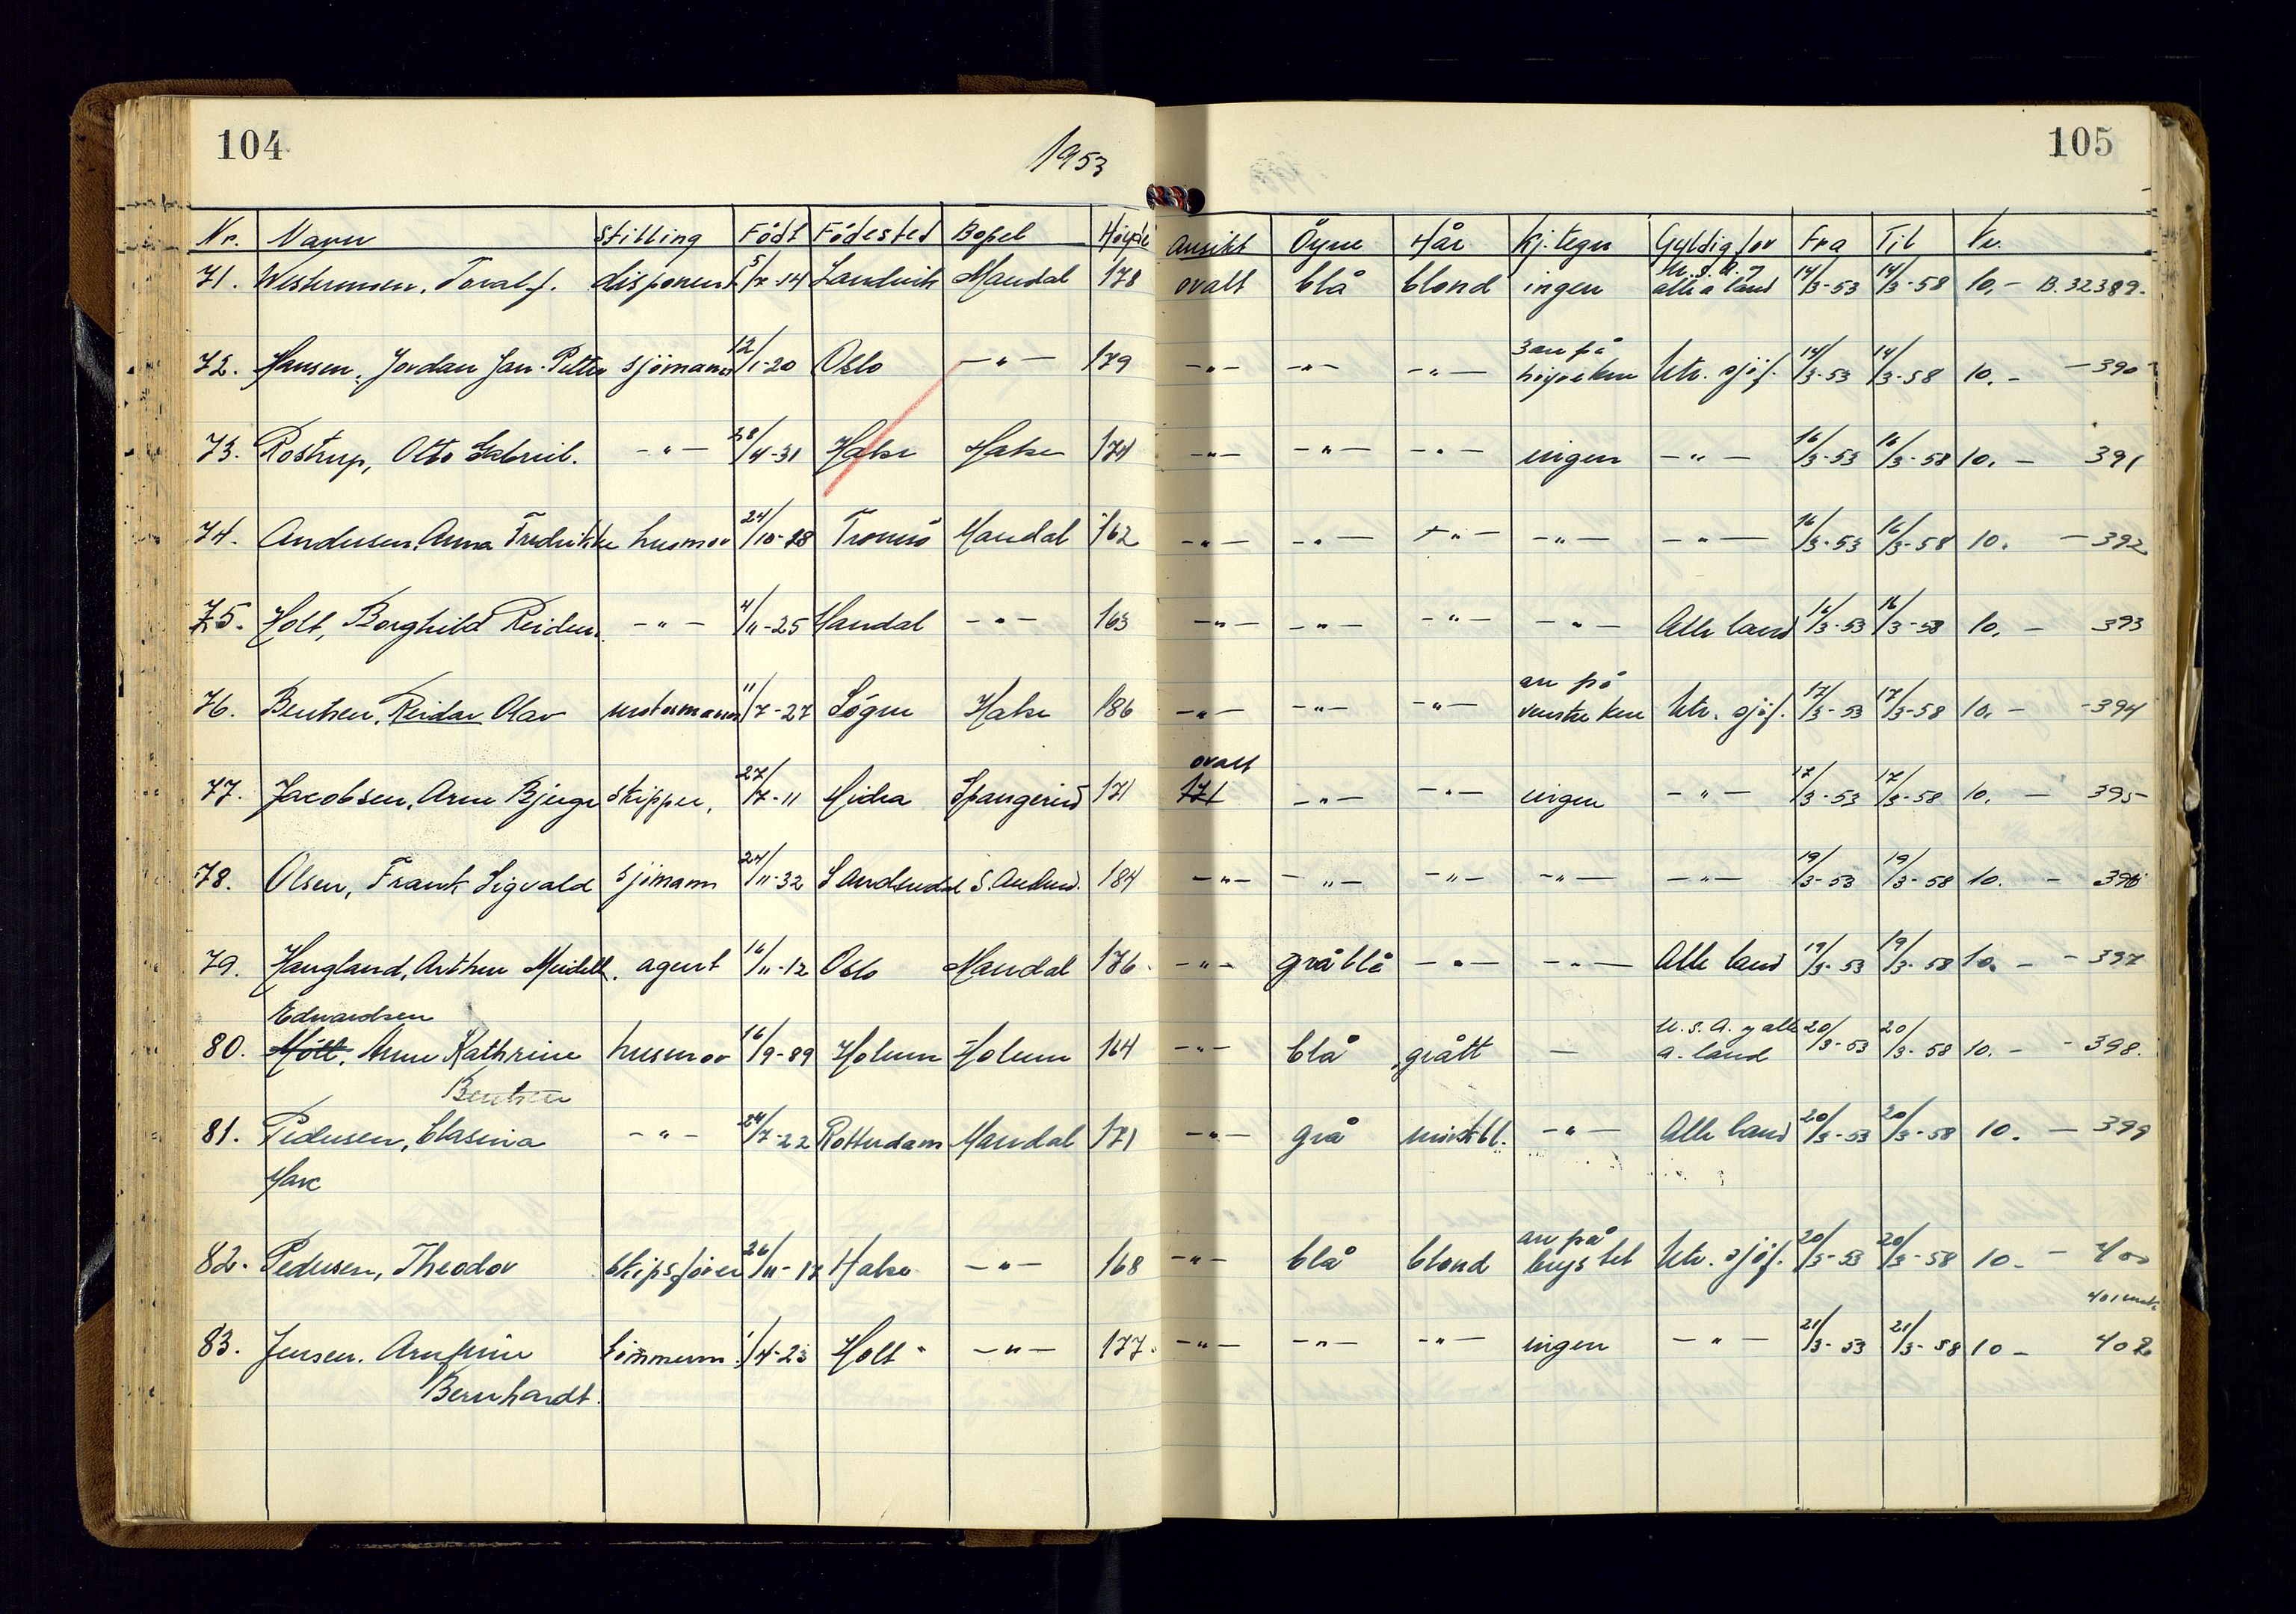 104
1953
105
Nr. Navn Stilling Födt Födested Bopel Høyde Ansikt Öyne Hår Kj.tegn Gyldig for Fra Til Kr.
71. Westermoen, Toralf. disponent 5/7-14 Landvik Mandal 178 ovalt blå blond ingen U.S.A. og alle a land 14/3-53 14/3-58 10.- B.32389.
72. Hansen, Jordan Jan-Petter sjömann 12/1-20 Oslo -"- 179 -"- -"- -"- 3 arr på höyre kne Utr. sjöf. 14/3-53 14/3-58 10.- -390
73. Rostrup, Otto Gabriel. -"- 28/4-31 Halse Halse 174 -"- -"- -"- ingen -"- 16/3-53 16/3-58 10.- 391
74. Andersen, Anna Fredrikke husmor 24/10-28 Tromsö Mandal 162 -"- -"- -"- -"- -"- 16/3-53 16/3-58 10. -392
75. Holt, Borghild Reidun. -"- 4/11-25 Mandal -"- 163 -"- -"- -"- -"- Alle land 16/3-53 16/3-58 10.- 393
76. Bentsen, Reidar Olav motormann 11/7-27 Sögne Halse 186 -"- -"- -"- arr på venstre kne Utr. sjöf. 17/3-53 17/3-58 10.- -394
ovalt
77. Jacobsen, Arne Bjerge skipper, 27/7-11 Hidra Spangerid 171 171 -"- -"- ingen -"- 17/3-53 17/3-58 10. - 395
78. Olsen, Frank Sigvald sjömann 24/11-32 S Audnedal S. Audned. 184 -"- -"- -"- -"- -"- 19/3-53 19/3-58 10. - 396
79. Haugland, Arthur Meidell. agent 16/11-12 Oslo Mandal 176. -"- gråblå -"- -"- Alle land 19/3-53 19/3-58 10. - -397
Edvardsen
80. Möll, Anne Kathrine husmor 16/9-89 Holum Holum 164 -"- blå grått - U.S.A. og alle a. land 20/3-53 20/3-58 10.- -398.
Bentsen
81. Pedersen, Clasina -"- 24/7-22 Rotterdam Mandal 171 -"- grå mörkbl. -"- Alle land 20/3-53 20/3-58 10. - 399
82. Pedersen, Theodor skipsförer 26/11-17 Halse -"- 168 -"- blå blond arr på brystet Utr. sjöf. 20/3-53 20/3-58 10- - 400
401 mak.
83. Jensen, Arnfinn tömmerm. 1/4-23 Holt -"- 177. -"- -"- -"- ingen -"- 21/3-53 21/3-58 10- 402
Bernhardt.